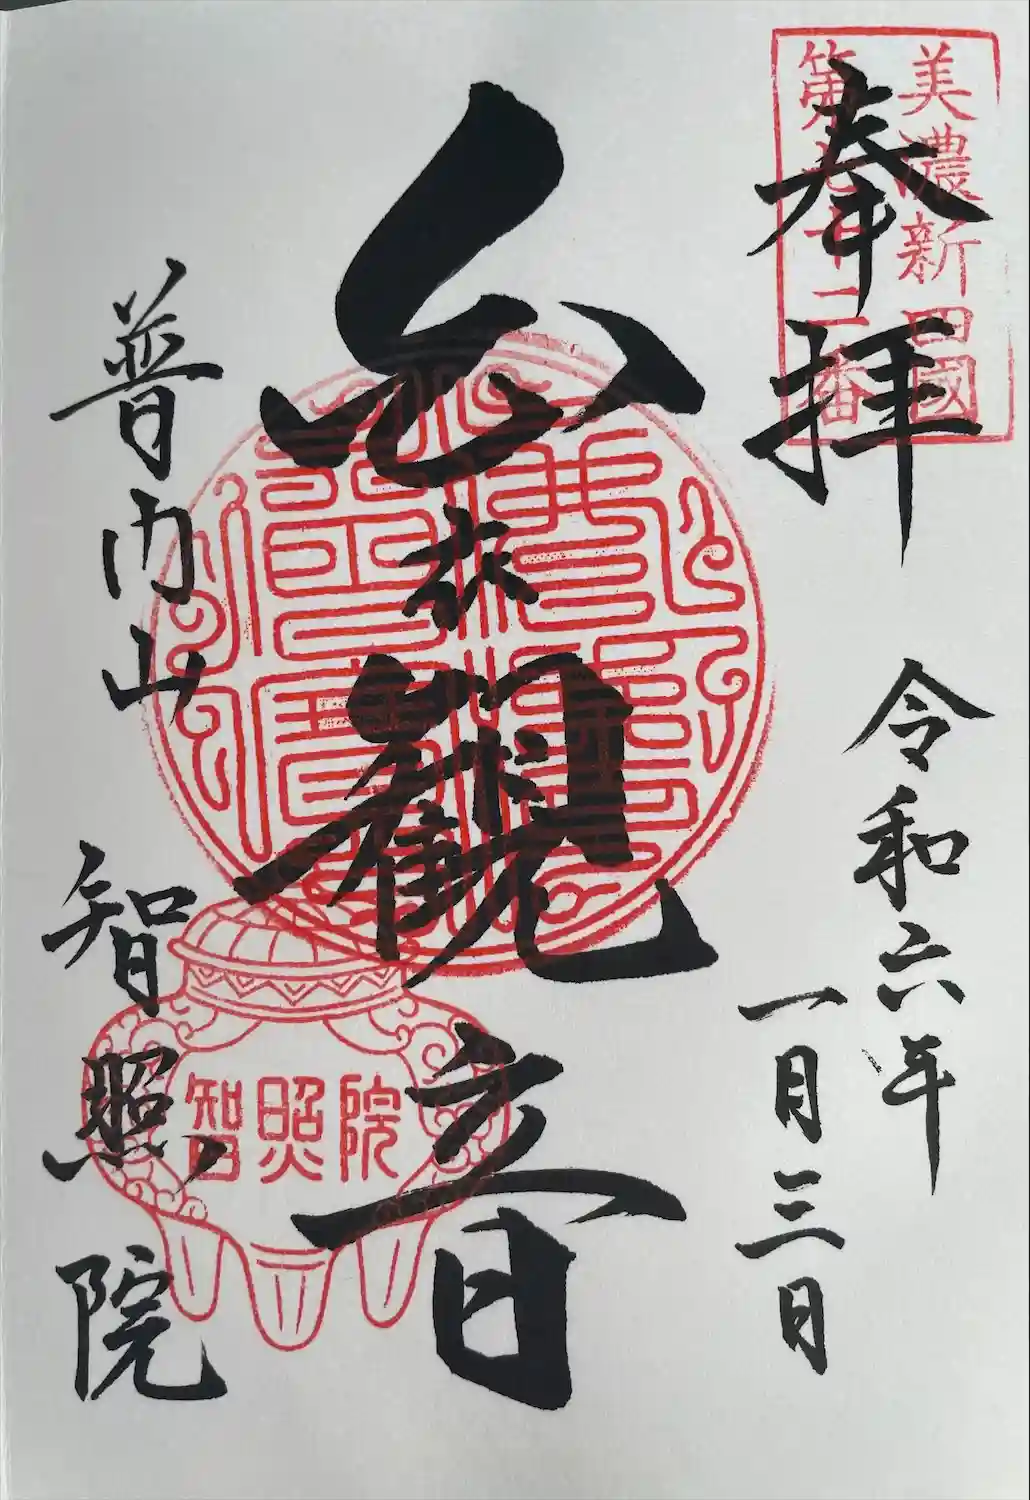 美濃新四國
第七十二番
奉拝
令和六年
一月三日
衣観音
普門山
智照院
智照院